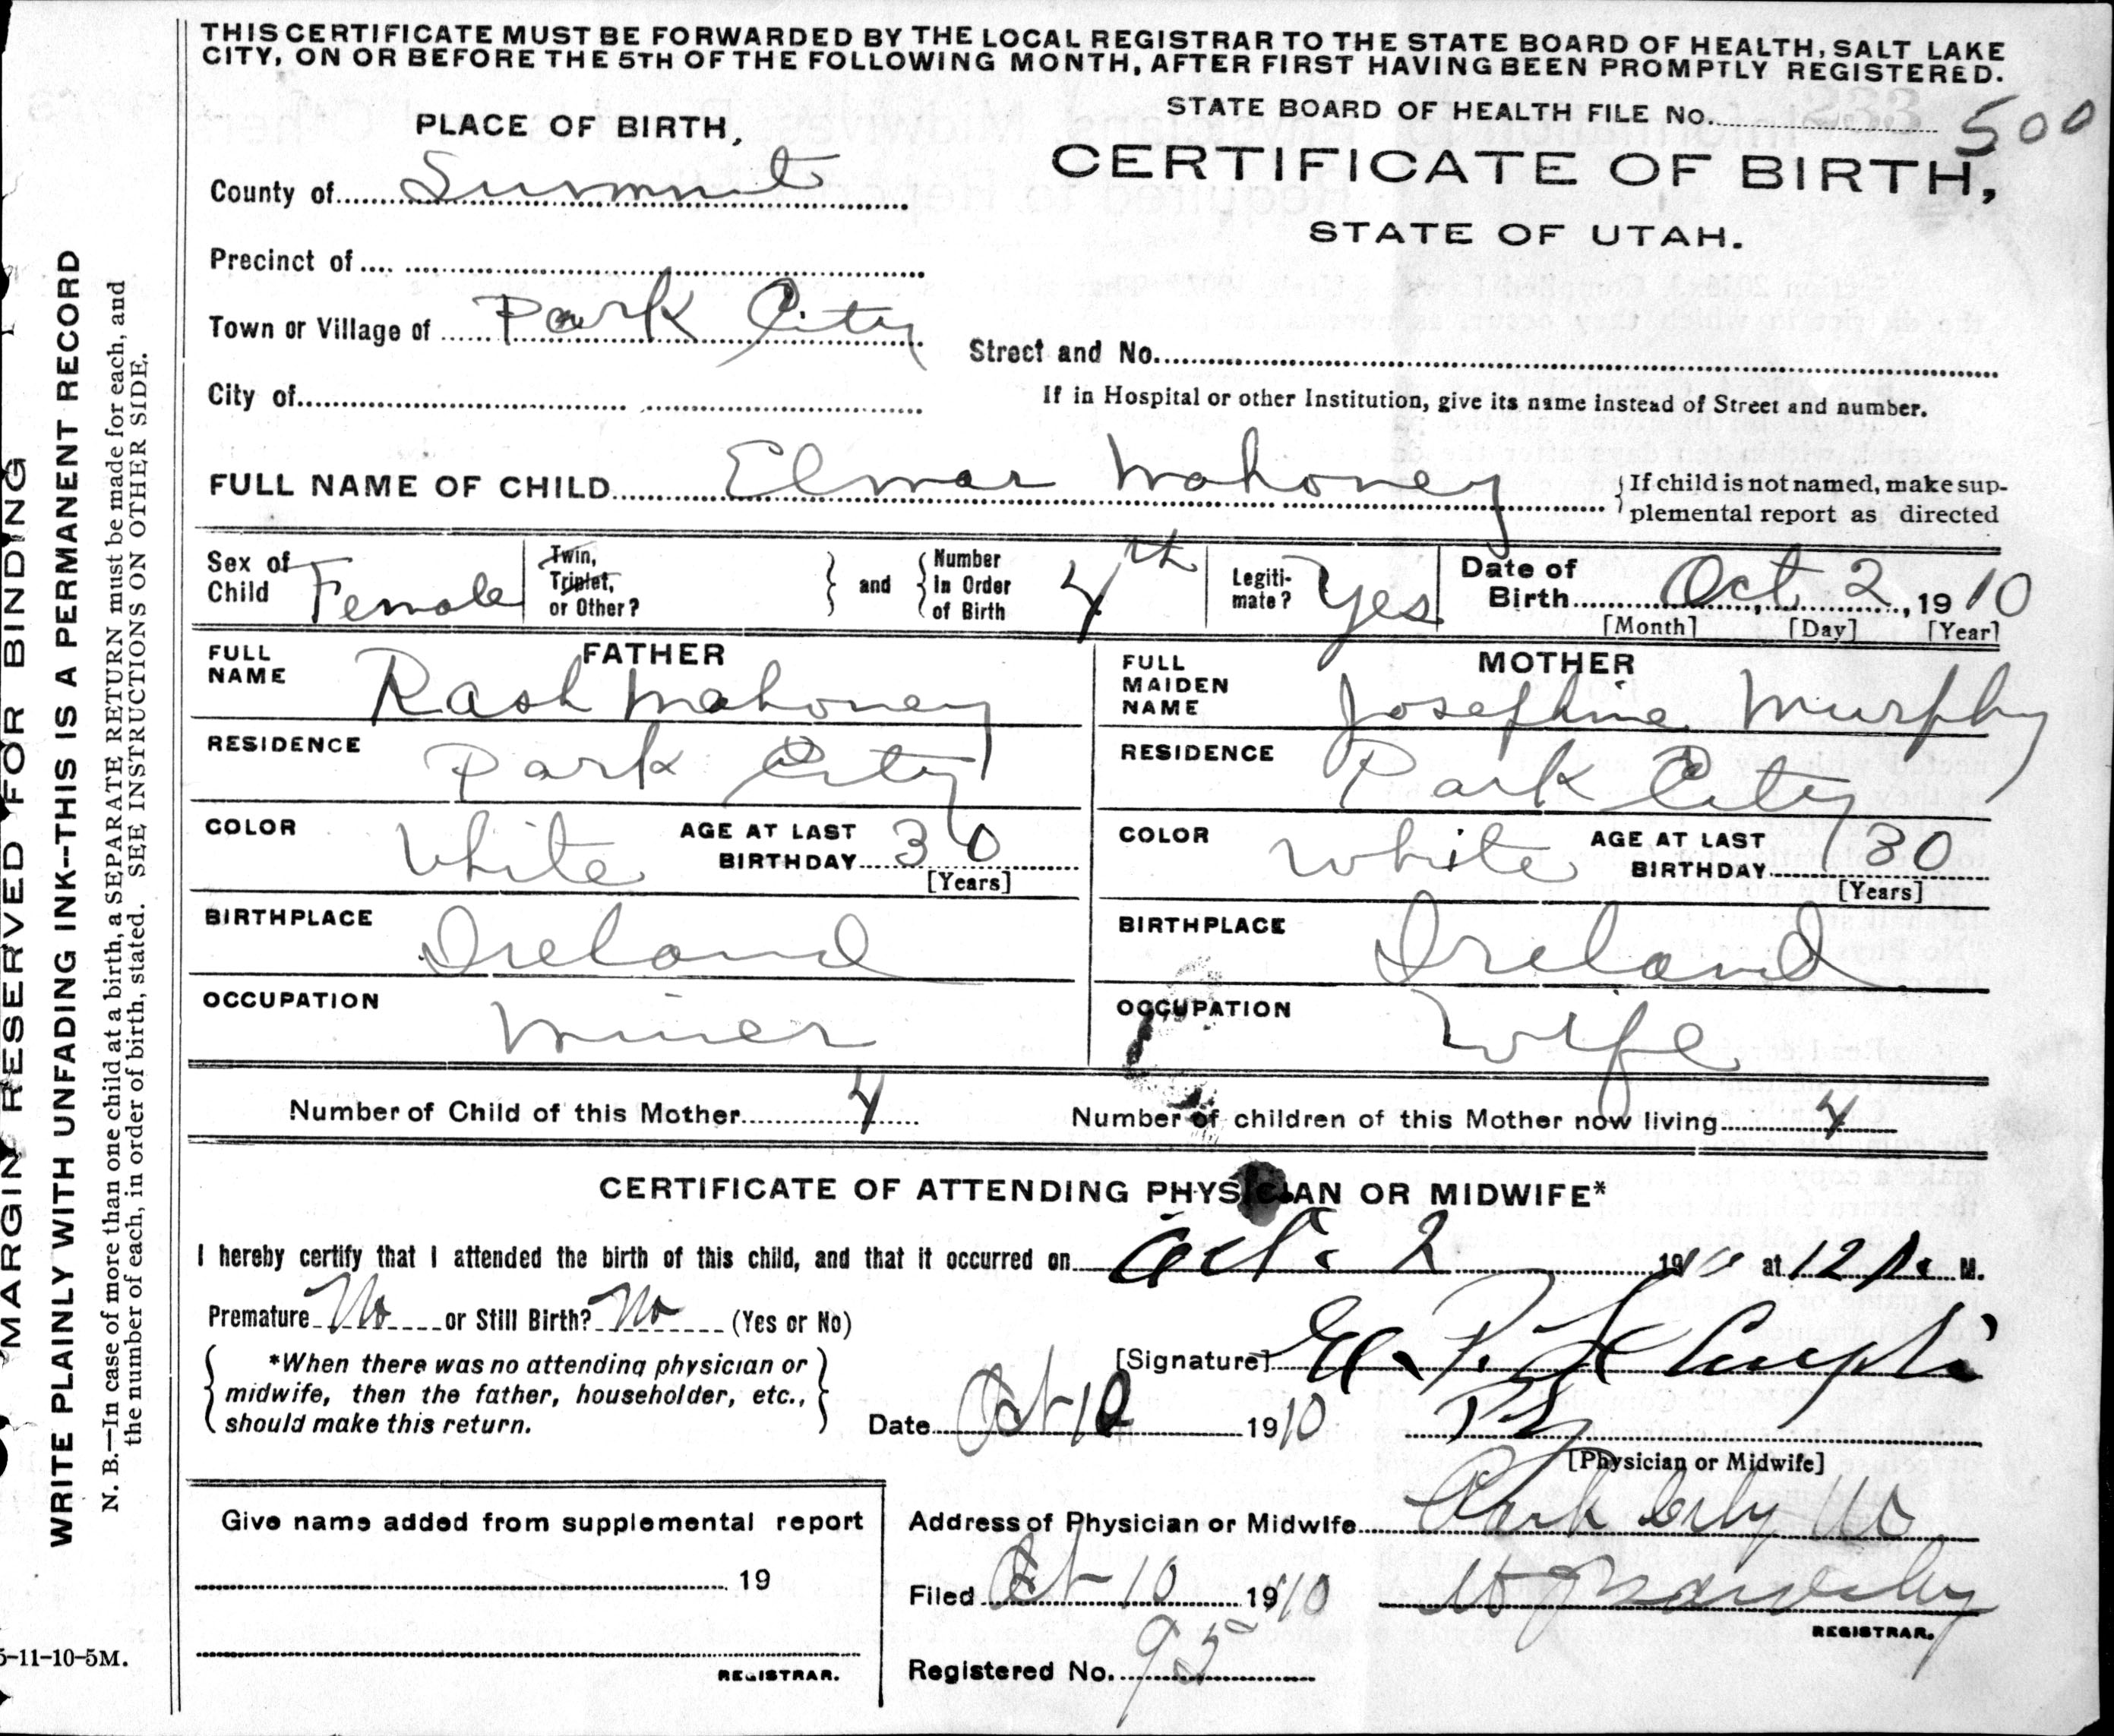 THIS CERTIFICATE MUST BE FORWARDED BY THE LOCAL REGISTRAR TO THE STATE BOARD OF HEALTH, SALT LAKE
CITY, ON OR BEFORE THE 5TH OF THE FOLLOWING MONTH, AFTER FIRST HAVING BEEN PROMPTLY REGISTERED.
STATE BOARD OF HEALTH FILE No. 500
PLACE OF BIRTH,
CERTIFICATE OF BIRTH,
STATE OF UTAH.
County of Summit
Precinct of
Town or Village of Park City
Street and No.
City of
If in Hospital or other Institution, give its name instead of Street and number.
FULL NAME OF CHILD Elmar Mahoney
If child is not named, make sup-
plemental report as directed
Sex of Child Female
Twin, Triplet, or Other?
and
Number in Order of Birth 4th
Legiti-mate? Yes
Date of Birth Oct 2, 1910
[Month] [Day] [Year]
FATHER
FULL NAME Rash Mahoney
RESIDENCE Park City
COLOR White
AGE AT LAST BIRTHDAY 30
[Years]
BIRTHPLACE Ireland
OCCUPATION Miner
MOTHER
FULL MAIDEN NAME Josephine Murphy
RESIDENCE Park City
COLOR White
AGE AT LAST BIRTHDAY 30
[Years]
BIRTHPLACE Ireland
OCCUPATION Wife
Number of Child of this Mother 4
Number of children of this Mother now living 4
CERTIFICATE OF ATTENDING PHYSICIAN OR MIDWIFE*
I hereby certify that I attended the birth of this child, and that it occurred on Oct. 2 1910 at 12 M.
Premature No or Still Birth? No (Yes or No)
*When there was no attending physician or
midwife, then the father, householder, etc.,
should make this return.
[Signature] E. P.
Date Oct 10 1910
[Physician or Midwife]
Give name added from supplemental report
19
REGISTRAR.
Address of Physician or Midwife Park City
Filed Oct 10 1910
REGISTRAR.
Registered No. 95
MARGIN RESERVED FOR BINDING
WRITE PLAINLY WITH UNFADING INK--THIS IS A PERMANENT RECORD
N. B.—In case of more than one child at a birth, a SEPARATE RETURN must be made for each, and
the number of each, in order of birth, stated. SEE INSTRUCTIONS ON OTHER SIDE.
5-11-10-5M.